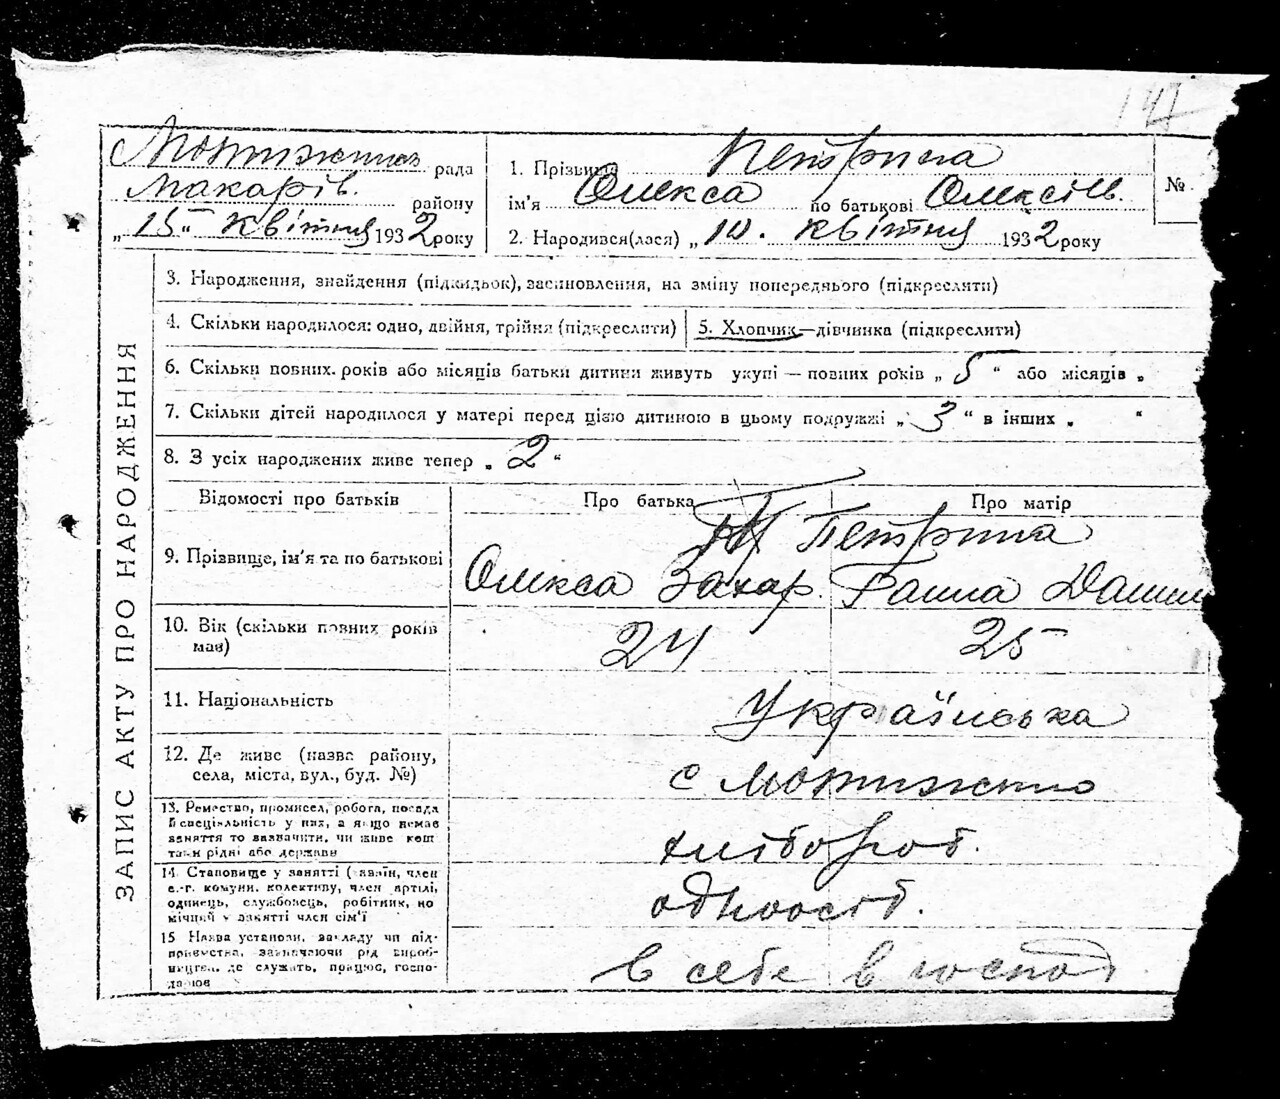 147
Мотижинс рада
Макарів. району
„15“ квітня 1932 року
1. Прізвище Петрина
ім'я Олекса по батькові Олексів.
2. Народився(лася) „10. квітня 1932 року
№
ЗАПИС АКТУ ПРО НАРОДЖЕННЯ
3. Народження, знайдення (підкидьок), засиновлення, на зміну попереднього (підкресляти)
4. Скільки народилося: одно, двійня, трійня (підкреслити)
5. Хлопчик—дівчинка (підкреслити)
6. Скільки повних. років або місяців батьки дитини живуть укупі — повних років „ 5 “ або місяців „
7. Скільки дітей народилося у матері перед цією дитиною в цьому подружжі „ 3 “ в інших „ “
8. З усіх народжених живе тепер „ 2 “
Відомості про батьків
Про батька
Про матір
9. Прізвище, ім'я та по батькові
Петрина
Олекса Захар. Ганна Данил
10. Вік (скільки повних років
мав)
24
25
11. Національність
Українська
12. Де живе (назва району,
села, міста, вул., буд. №)
с Мотижино
13. Ремество, промисел, робота, посада
й спеціяльність у них, а якщо немає
заняття то зазначити, чи живе кошт
рідні або держави
хлібороб.
14. Становище у занятті ( хазяїн, член
с.-г. комуни, колективу, член артілі,
одинець, службовець, робітник, по
мічний у занятті член сім'ї
одноосіб.
15 Назва установи, закладу чи під-
приємства, зазначаючи рід вироб-
ництва, де служать, працює, госпо-
дарює
в себе в господ